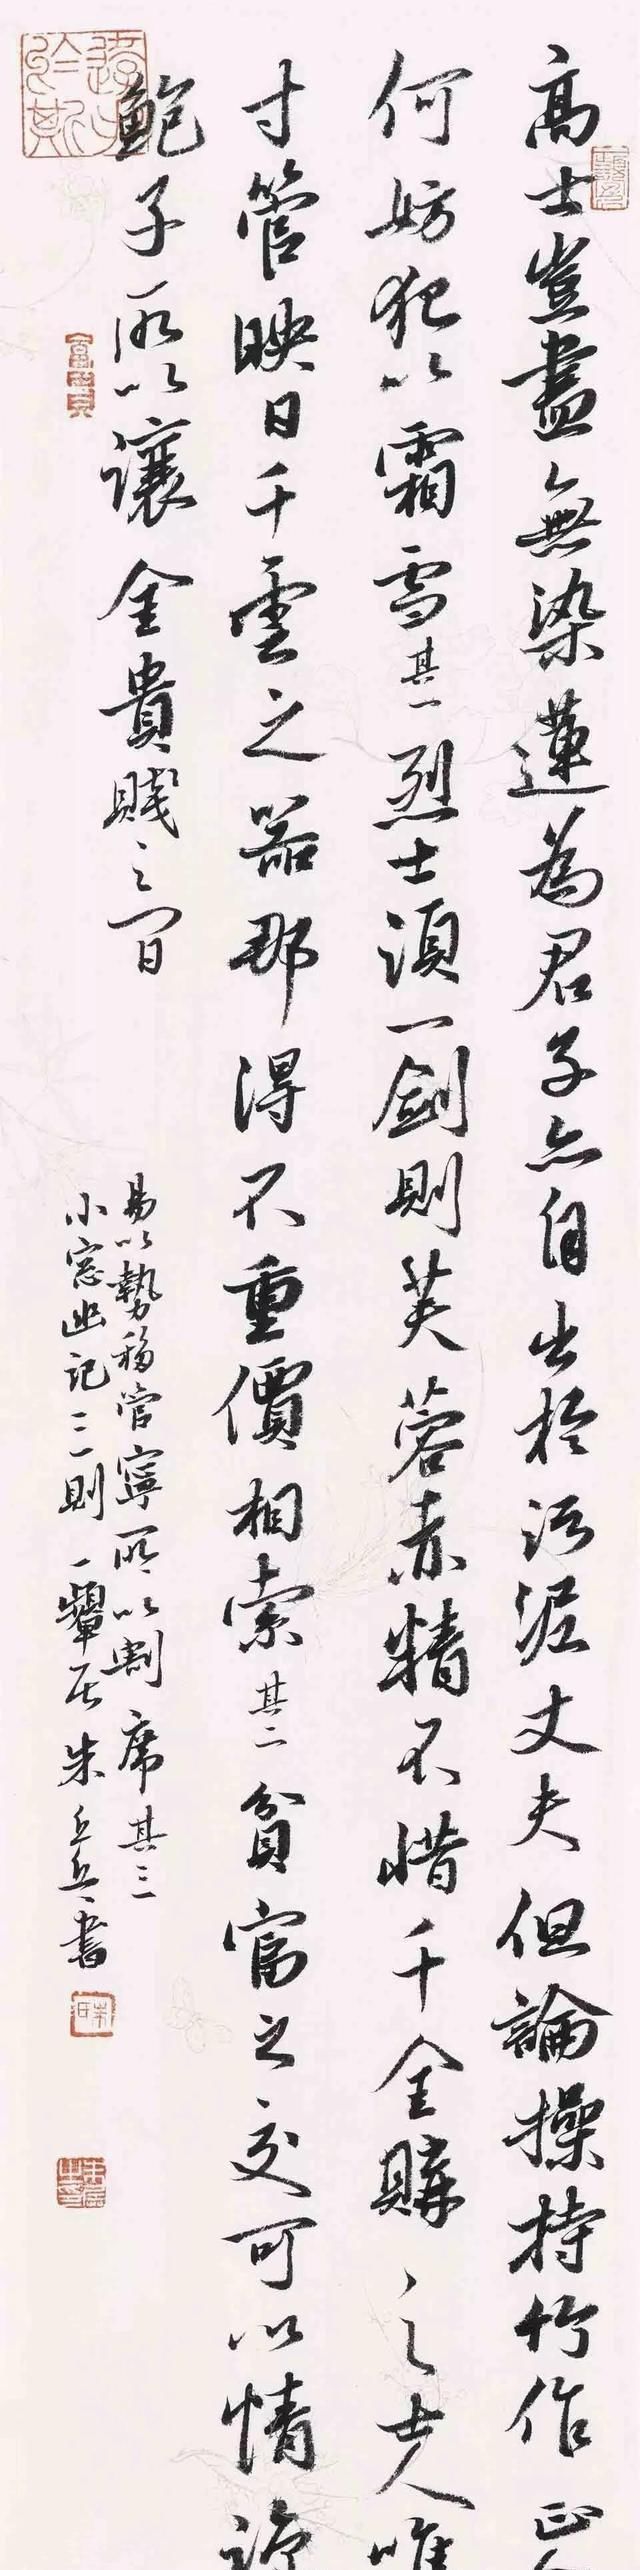 高士豈盡無染蓮為君子亦自出於污泥丈夫但論操持竹作正
何妨犯以霜雪其一烈士須一劍則芙蓉赤精不惜千金購之士人唯
寸管映日干雲之器那得不重價相索其二貧富之交可以情諒
鮑子所以讓金貴賤之間
易以勢移管寧所以割席其三
小窗幽記三則 朱 書